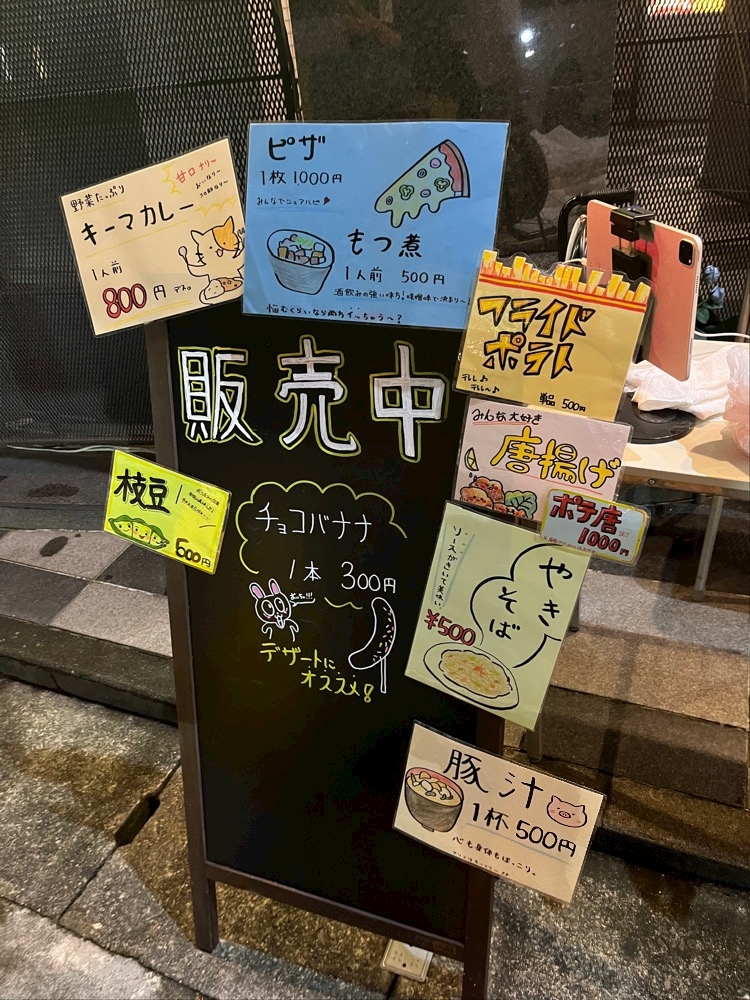 野菜たっぷり
キーマカレー
甘口ナリ〜
1人前
800円
ピザ
1枚 1,000円
みんなでシェアハピ
もつ煮
1人前 500円
酒飲みの強い味方!味噌味で決まり〜!
悩むくらいなら両方イっちゃう〜?
フライド
ポテト
テレレ♪
テレレ〜♪
単品 500円
販売中
みんな大好き
唐揚げ
ポテ唐
SET
1000円
枝豆
500円
チョコバナナ
1本 300円
デザートに
オススメ!
やき
そば
ソースがきいて美味い
¥500
豚汁
1杯 500円
心も身体もほっこり。